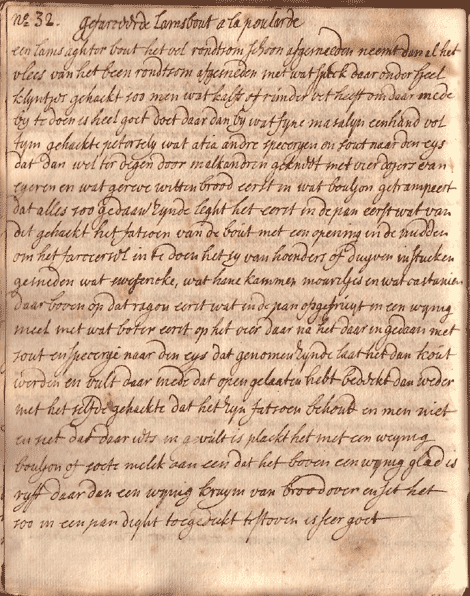 no 32. gefarceerde lamsbout a la poularde
een lams aghter bout het vel rondtsom schoon afgesneeden neemt dan al het
vlees van het been rondtsom afgesneden met wat speck daar onder heel
klyntjes gehackt soo men wat kalfs of runder vet heeft om daar mede
by te doen is heel goet doet daar dan by wat fyne matalyn een hand vol
fyn gehackte petersely wat a andre speceryen en sout naar den eys
dat dan wel ter degen door malkandren geknedt met vier doyers van
eyeren en wat gereve witten brood eerst in wat bouljon getrampeert
dat alles soo gedaan zynde leght het eerst in de pan eerst wat van
dit gehackt het fatsoen van de bout met een opening in de midden
om het farceersel in te doen het sy van hoenders of duyven in stucken
gesneden wat swesericke, wat hane kammen mourzljes en wat castanien
daar boven op dat ragou eerst wat in de pan opgefruyt in een wynig
meel met wat boter eerst op het vier daar na het daar in gedaan met
sout en specerge naar den eys dat genomen zynde laat het dan kout
werden en vult daar mede dat open gelaaten hebt bedeckt dan weder
met het selfde gehackte dat het zyn fatsoen behout en men niet
en siet dat daar iets in a vult is plackt het met een weynig
bouljon of soete melck aan een dat het boven een wynig glad is
ryft daar dan een wynig kruym van brood over en set het
soo in een pan dight toegedeckt te stoven is seer goet